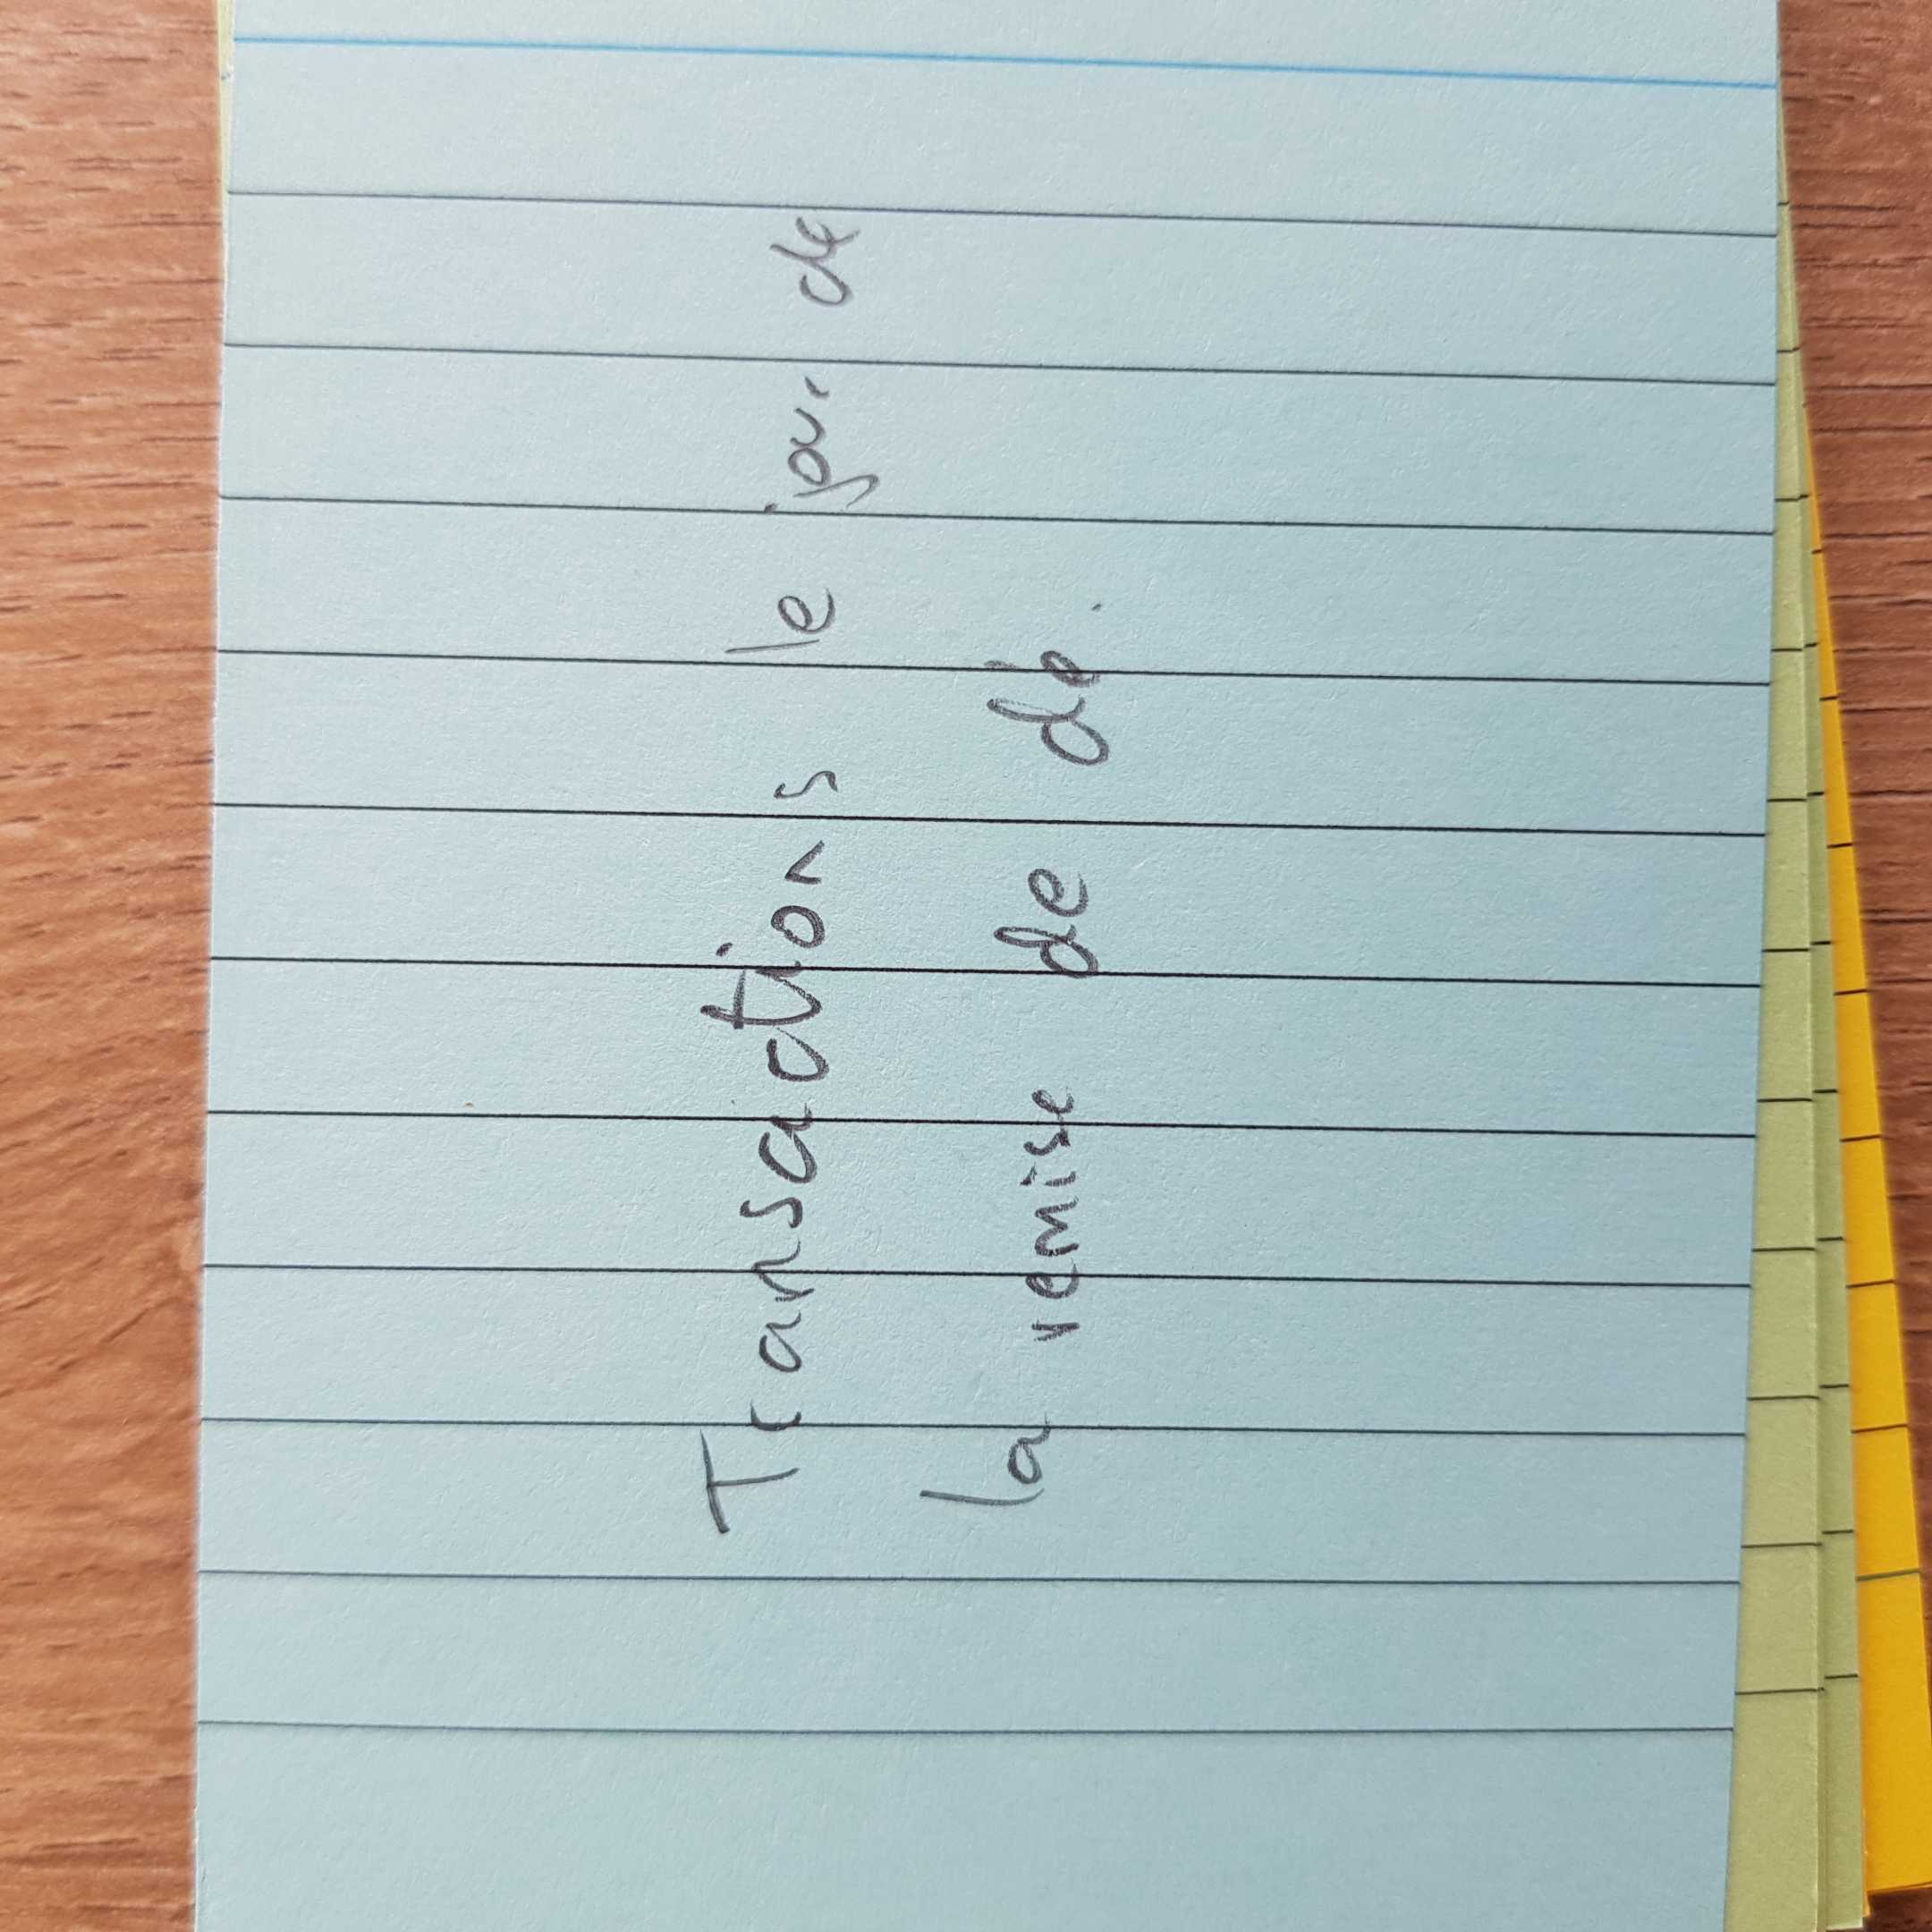 Transactions le jour de
la remise de dé.